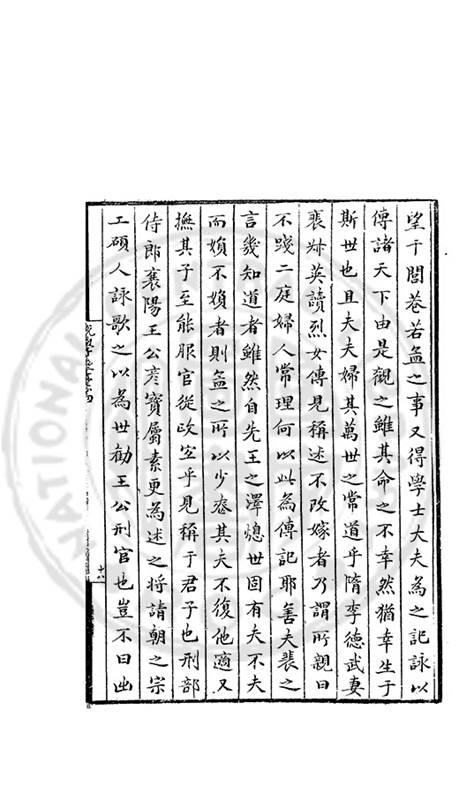 望于閭巷若孟之事又得學士大夫為之記詠以
傳諸天下由是觀之雖其命之不幸然猶幸生于
斯世也且夫夫婦其萬世之常道乎隋李德武妻
裴淑英讀烈女傳見稱述不改嫁者乃謂所親曰
不踐二庭婦人常理何以此為傳記耶善夫裴之
言幾知道者雖然自先王之澤熄世固有夫不夫
而嬪不嬪者則孟之所以少喪其夫不復他適又
撫其子至能服官從政宜乎見稱于君子也刑部
侍郎襄陽王公彥寶屬素更為述之將請朝之宗
工碩人詠歌之以為世勸王公刑官也豈不曰出
十八